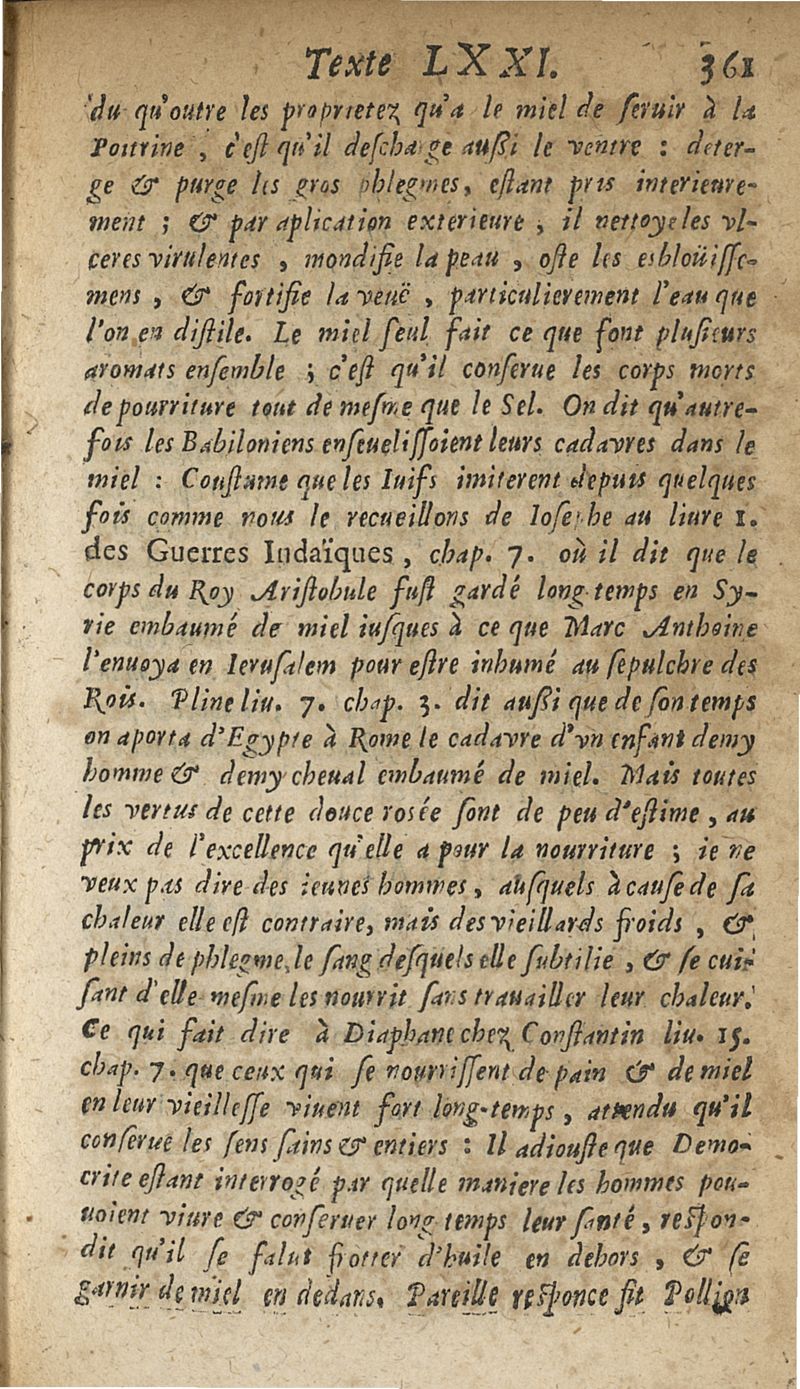 Texte LXXI. 361
du qu'outre les proprietez qu'a le miel de ſeruir à la
Poitrine, c'eſt qu'il deſcharge auſſi le ventre : deter-
ge & purge les gros phlegmes, eſtant pris interieure-
ment ; & par aplication exterieure, il nettoye les vl-
ceres virulentes, mondifie la peau, oſte les esbloüiſſe-
mens, & fortifie la veuë, particulierement l'eau que
l'on en diſtile. Le miel ſeul fait ce que font pluſieurs
aromats enſemble ; c'eſt qu'il conſerue les corps morts
de pourriture tout de meſme que le Sel. On dit qu'autre-
fois les Babiloniens enſeueliſſoient leurs cadavres dans le
miel : Couſtume que les Iuifs imiterent depuis quelques
fois comme nous le recueillons de Ioſephe au liure 1.
des Guerres Iudaïques, chap. 7. où il dit que le
corps du Roy Ariſtobule fuſt gardé long temps en Sy-
rie embaumé de miel iuſques à ce que Marc Anthoine
l'enuoya en Ieruſalem pour eſtre inhumé au ſepulchre des
Rois. Pline liu. 7. chap. 3. dit auſſi que de ſon temps
on aporta d'Egypte à Rome le cadavre d'vn enfant demy
homme & demy cheual embaumé de miel. Mais toutes
les vertus de cette douce rosée ſont de peu d'eſtime, au
prix de l'excellence qu'elle a pour la nourriture ; ie ne
veux pas dire des ieunes hommes, auſquels à cauſe de ſa
chaleur elle eſt contraire, mais des vieillards froids, &
pleins de phlegme, le ſang deſquels elle ſubtilie, & ſe cui-
ſant d'elle meſme les nourrit ſans trauailler leur chaleur.
Ce qui fait dire à Diaphane chez Conſtantin liu. 15.
chap. 7. que ceux qui ſe nourriſſent de pain & de miel
en leur vieilleſſe viuent fort long-temps, attendu qu'il
conſerue les ſens ſains & entiers : Il adiouſte que Demo-
crite eſtant interrogé par quelle maniere les hommes pou-
uoient viure & conſeruer long temps leur ſanté, reſpon-
dit qu'il ſe falut frotter d'huile en dehors, & ſe
garnir de miel en dedans. Pareille reſponce fit Pollion